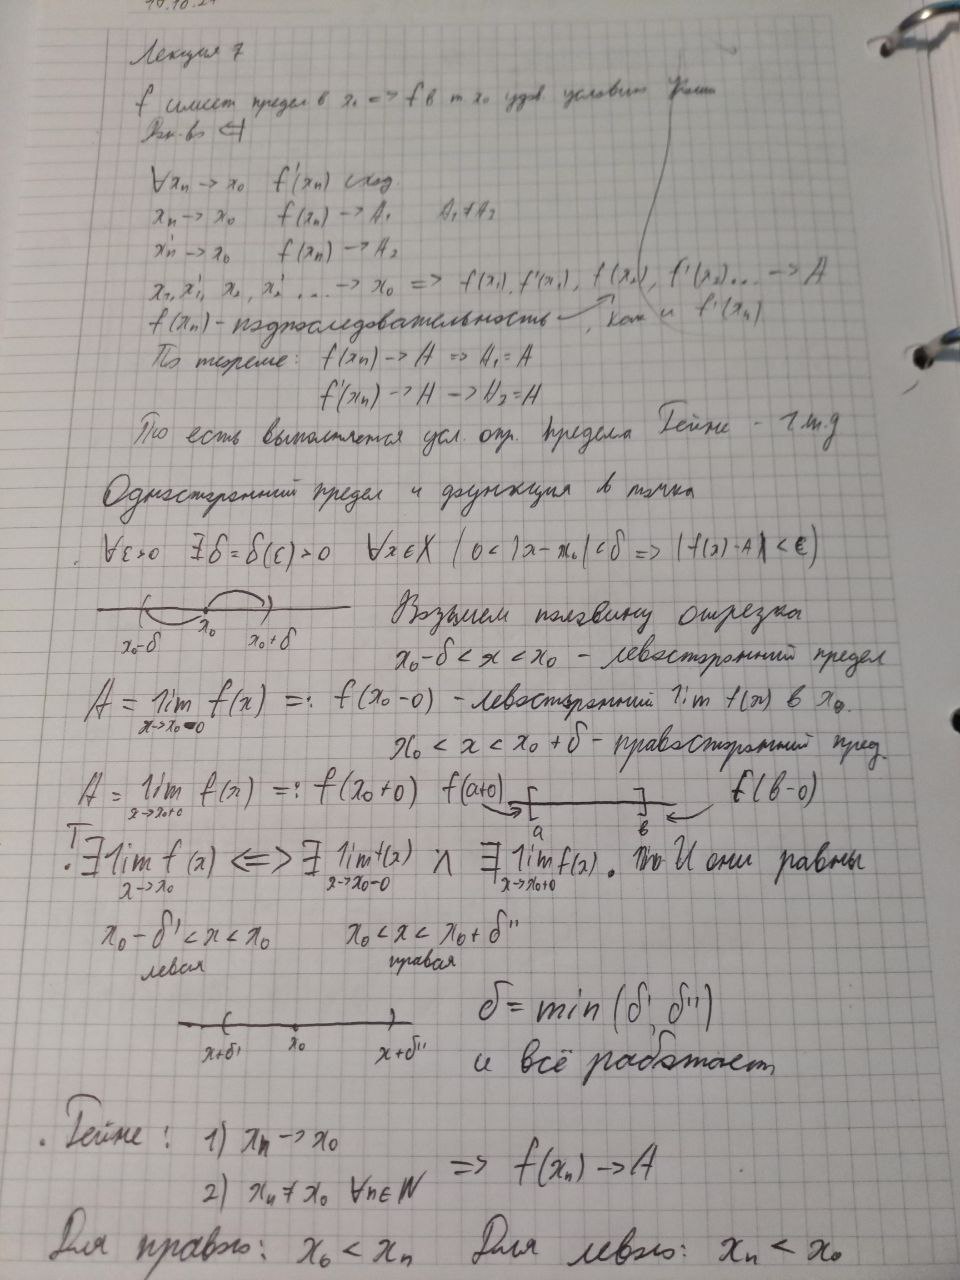 Лекция 7
f имеет предел в x₀ => f в т x₀ удов условию Коши
Док-во <=
∀xₙ -> x₀ f'(xₙ) сход.
xₙ -> x₀ f(xₙ) -> A₁ A₁≠A₂
x'ₙ -> x₀ f(xₙ) -> A₂
x₁, x'₁, x₂, x'₂ ... -> x₀ => f(x₁), f'(x₁), f(x₂), f'(x₂)... -> A
f(xₙ) - подпоследовательность, как и f'(xₙ)
По теореме: f(xₙ) -> A => A₁ = A
f'(xₙ) -> A -> A₂ = A
То есть выполняется усл. опр. предела Гейне - ч.т.д
Односторонний предел и функция в точка
∀ε>0 ∃δ = δ(ε) > 0 ∀x∈X (0 < |x - x₀| < δ => |f(x) - A| < ε)
x₀-δ x₀ x₀+δ
Возьмем половину отрезка
x₀-δ < x < x₀ - левосторонний предел
A = lim f(x) =: f(x₀-0) - левосторонний lim f(x) в x₀.
x->x₀-0
x₀ < x < x₀+δ - правосторонний пред.
A = lim f(x) =: f(x₀+0) f(a+0) f(в-0)
x->x₀+0 a в
Т
. ∃ lim f(x) <=> ∃ lim f(x) ∧ ∃ lim f(x). И они равны
x->x₀ x->x₀-0 x->x₀+0
x₀-δ' < x < x₀ x₀ < x < x₀+δ''
левая правая
δ = min(δ', δ'')
x+δ' x₀ x+δ''
и всё работает
. Гейне: 1) xₙ -> x₀
=> f(xₙ) -> A
2) xₙ ≠ x₀ ∀n∈N
Для правого: x₀ < xₙ Для левого: xₙ < x₀